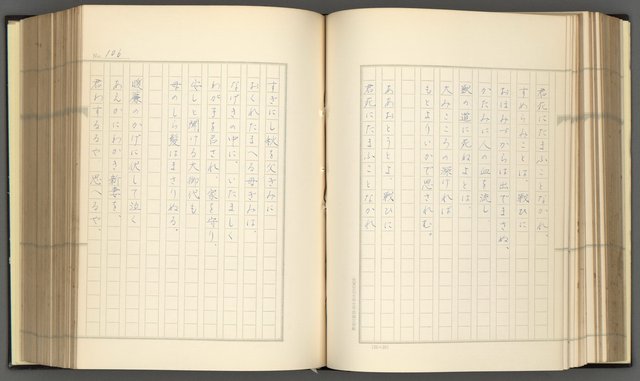 君死にたまふことなかれ、
すめらみことは、戦ひに
おほみづからは出でまさね、
かたみに人の血を流し、
獣の道に死ねよとは、
大みこころの深ければ
もとよりいかで思されむ。
ああおとうとよ、戦ひに
君死にたまふことなかれ
No. 106
すぎにし秋を父ぎみに
おくれたまへる母ぎみは、
なげきの中に、いたましく
わが子を召され、家を守り、
安しと聞ける大御代も
母のしら髪はまさりぬる。
暖簾のかげに伏して泣く
あえかにわかき新妻を、
君わするるや、思へるや、